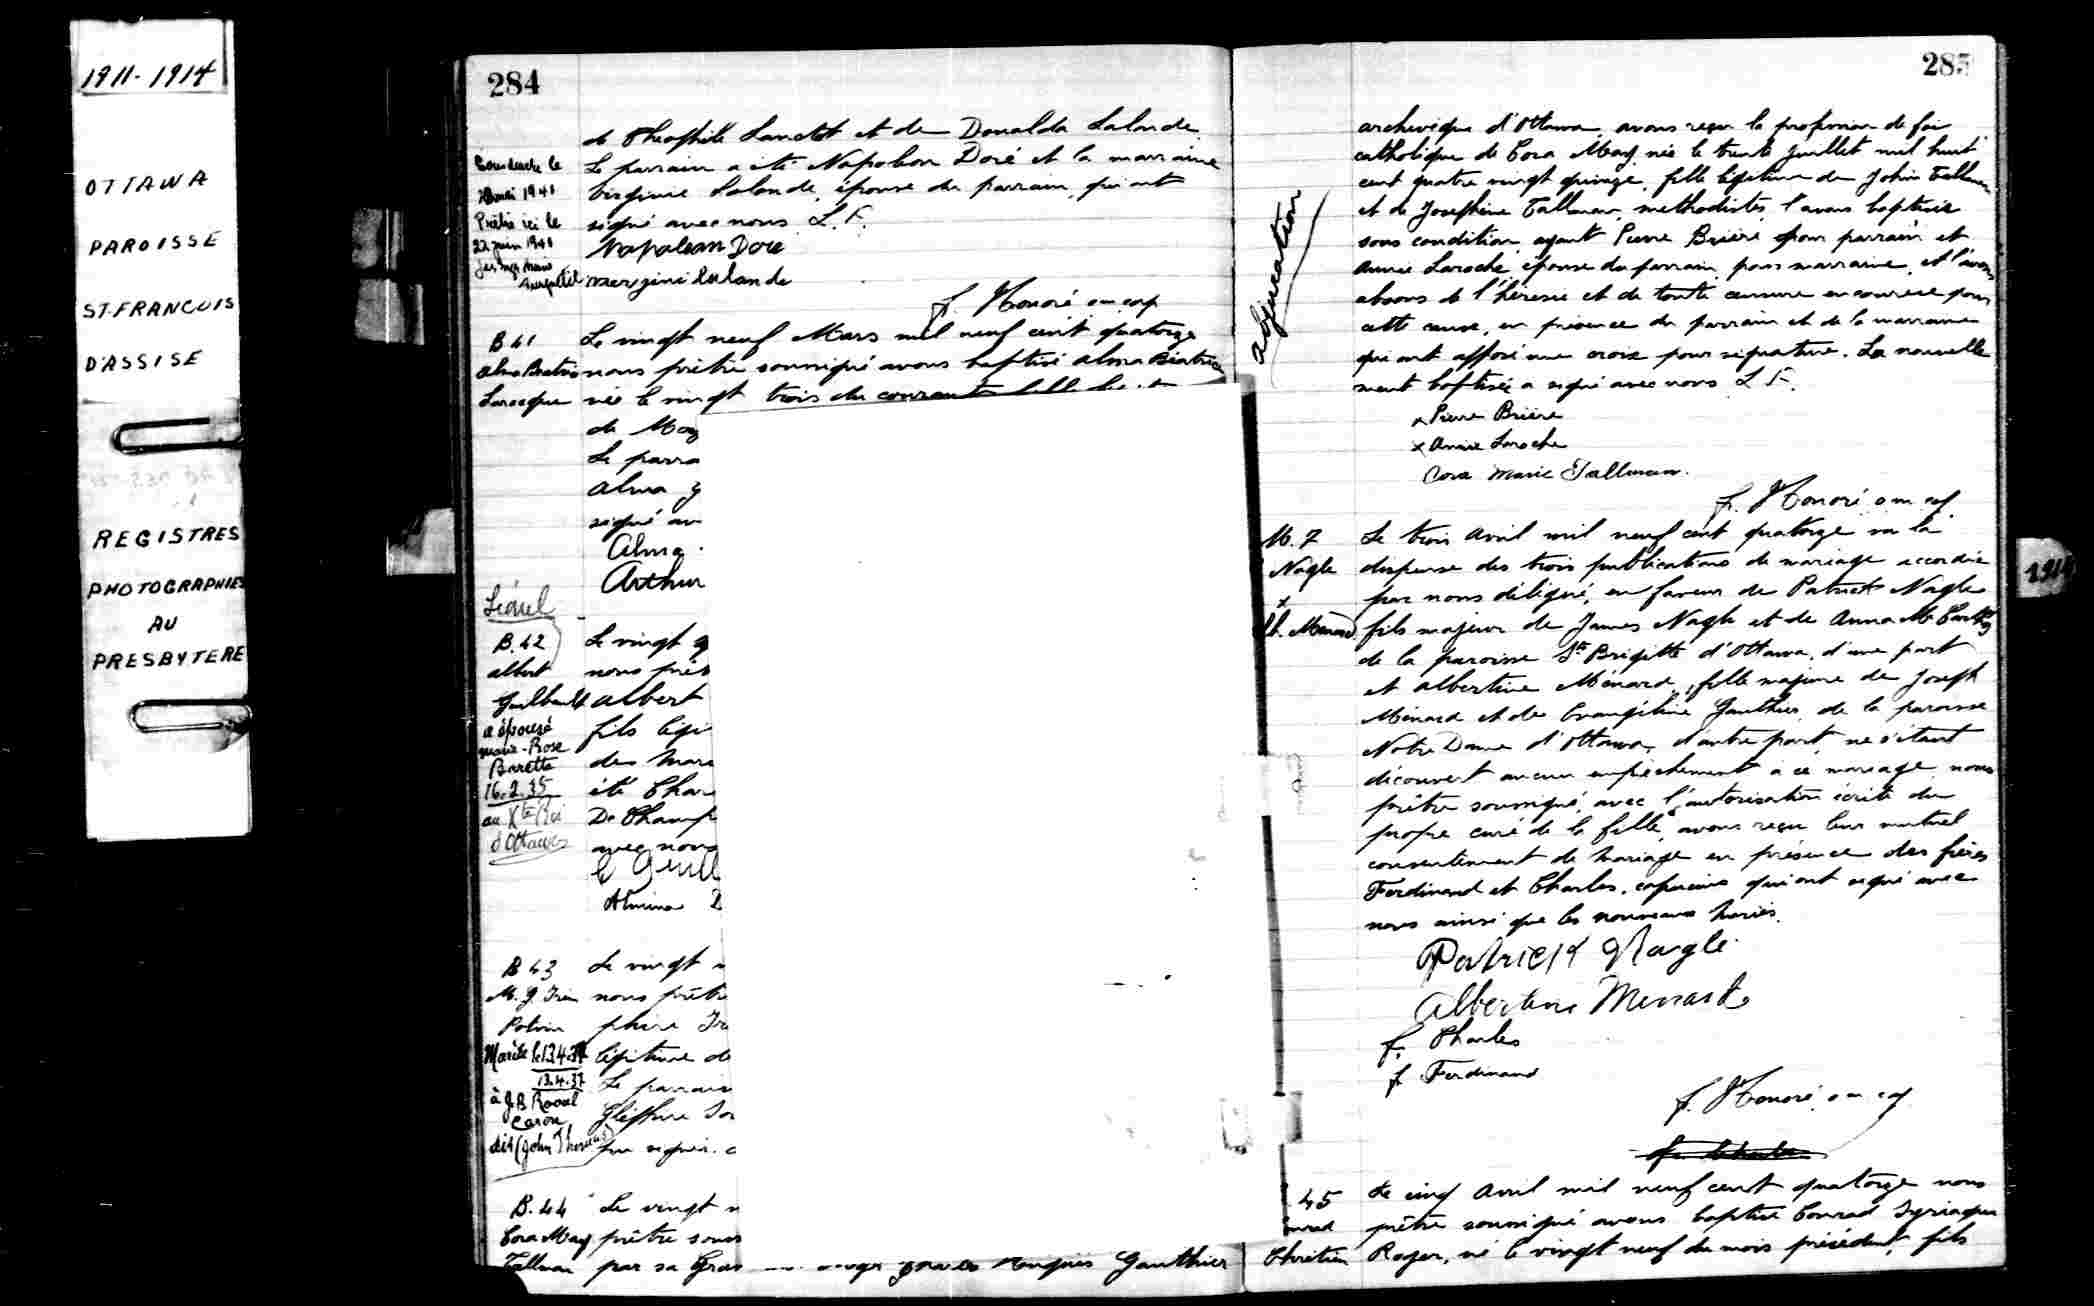 1911-1914
OTTAWA
PAROISSE
ST-FRANCOIS
D'ASSISE
REGISTRES
PHOTOGRAPHIES
AU
PRESBYTERE
284
de Théophile Lanctot et de Donalda Lalonde
Le parrain a été Napoléon Doré et la marraine
Virginie Lalonde, épouse du parrain, qui ont
signé avec nous L. F.
Napoleon Dore
f. Honoré o m cap
1941
22 juin 1941
B 41
Alma Beatrice
Larocque
Le vingt neuf Mars mil neuf cent quatorze
nous prêtre soussigné avons baptisé Alma Béatrice
née le vingt trois du courant
de
Le parra
Alma
signé av
Alma
Arthur
B. 42
Albert
Guilbault
a épousé
Marie-Rose
Barette
16.2.35
d'Ottawa
Le vingt
nous prêt
Albert
fils légi
des Mara
été Char
De Champ
avec nous
B 43
Potvin
Mariée le 13.4.37
13.4.37
à J.B. Raoul
Caron
dit (John Thomas)
Le vingt
nous prêtre
légitime de
Le parrain
B. 44
Cora May
Tallman
Le vingt
prêtre souss
par sa Gran
Gauthier
285
abjuration
archevêque d'Ottawa, avons reçu la profession de foi
catholique de Cora May, née le trente juillet mil huit
cent quatre vingt quinze, fille légitime de John Tallman
et de Josephine Tallman, méthodistes, l'avons baptisée
sous condition ayant Pierre Brière pour parrain et
Annie Laroche épouse du parrain, pour marraine, et l'avons
absous de l'hérésie et de toute censure encourue pour
cette cause, en présence du parrain et de la marraine
qui ont apposé une croix pour signature. La nouvelle
ment baptisée a signé avec nous L. F.
x Pierre Brière
x Annie Laroche
Cora Marie Tallman.
f. Honoré o m cap.
M. 7
Nagle
x
Alb. Ménard
Le trois Avril mil neuf cent quatorze vu la
dispense des trois publications de mariage accordée
par nous délégué, en faveur de Patrick Nagle
fils majeur de James Nagle et de Anna McCarthy
de la paroisse Ste Brigitte d'Ottawa, d'une part
et Albertine Ménard, fille majeure de Joseph
Ménard et de Evangéline Gauthier de la paroisse
Notre Dame d'Ottawa, d'autre part, ne s'étant
découvert aucun empêchement à ce mariage nous
prêtre soussigné, avec l'autorisation écrite du
propre curé de la fille, avons reçu leur mutuel
consentement de mariage en présence des frères
Ferdinand et Charles, capucins qui ont signé avec
nous ainsi que les nouveaux mariés.
Patrick Nagle
Albertine Menard
f. Charles
f. Ferdinand
f. Honoré, o m cap
45
Chrétien
Le cinq Avril mil neuf cent quatorze nous
prêtre soussigné avons baptisé Conrad Syriaque
Roger, né le vingt neuf du mois précédent, fils